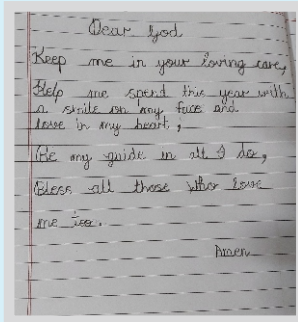 Dear God
Keep me in your loving care,
Help me spend this year with
a smile on my face and
love in my heart,
Be my guide in all I do,
Bless all those who love
me too.
Amen